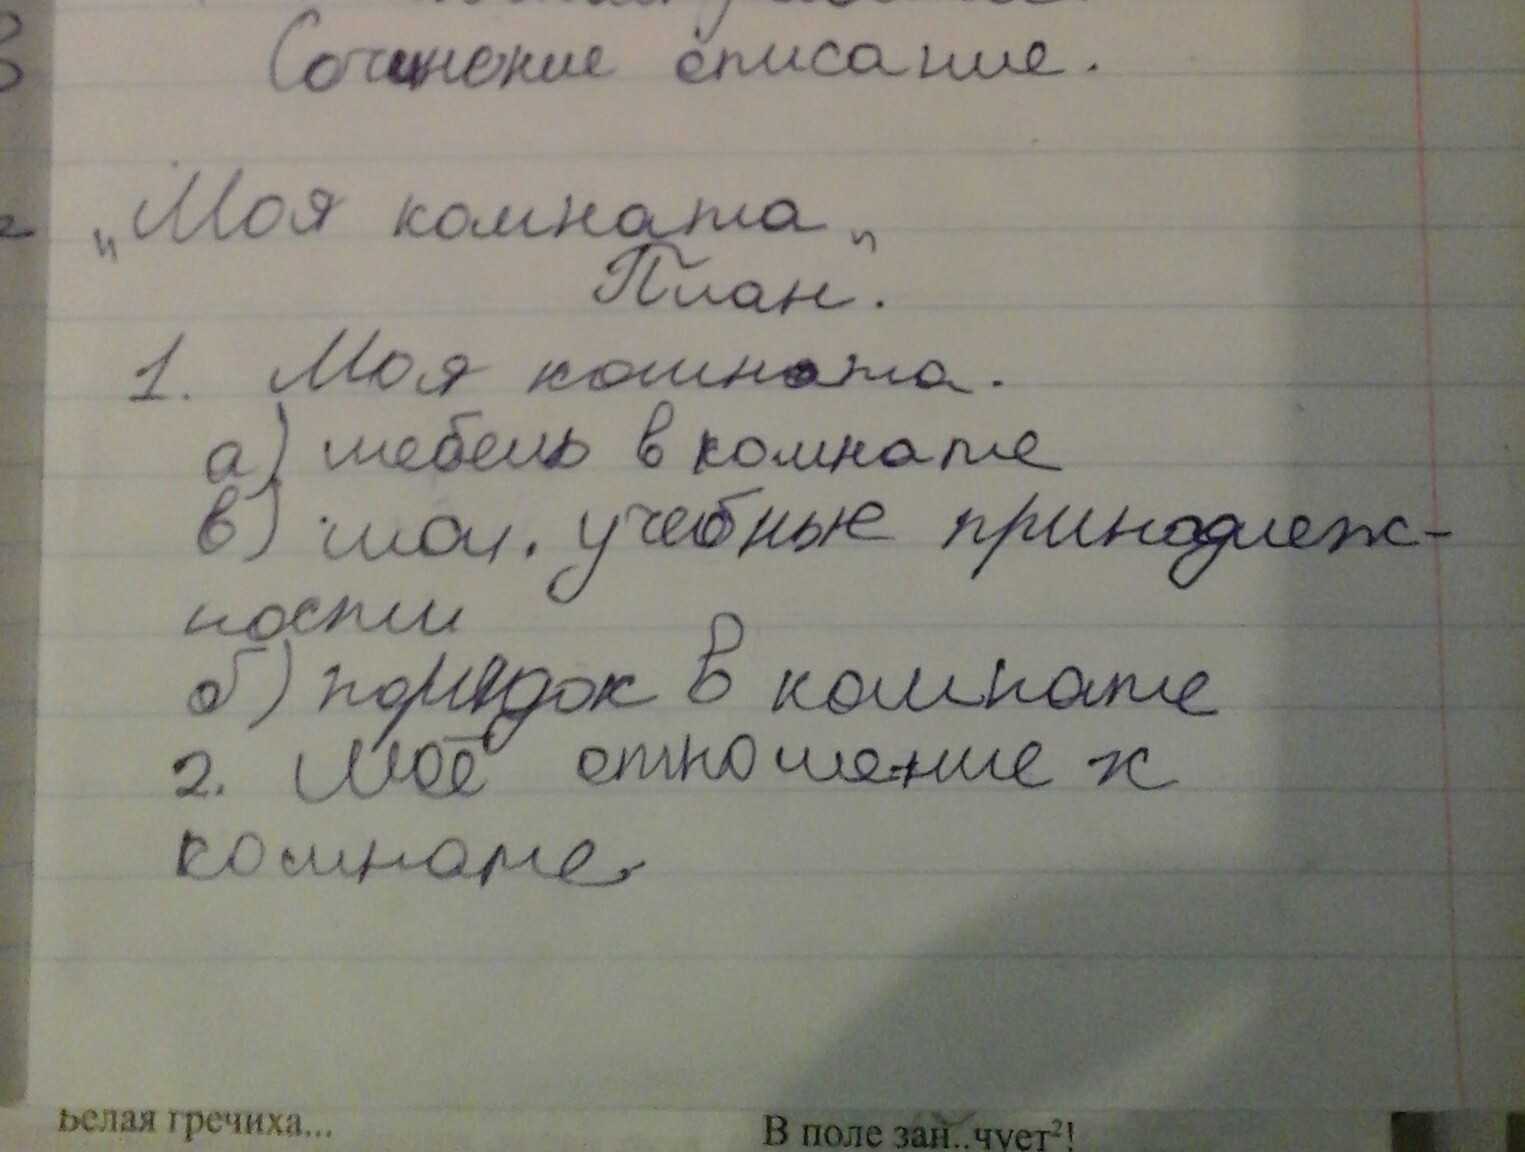 Сочинение описание.
„Моя комната„
План.
1. Моя комната.
а) мебель в комнате
в) мои. учебные принадлеж-
ности
б) порядок в комнате
2. Моё отношение к
комнате.
Белая гречиха...
В поле зан..чует²!